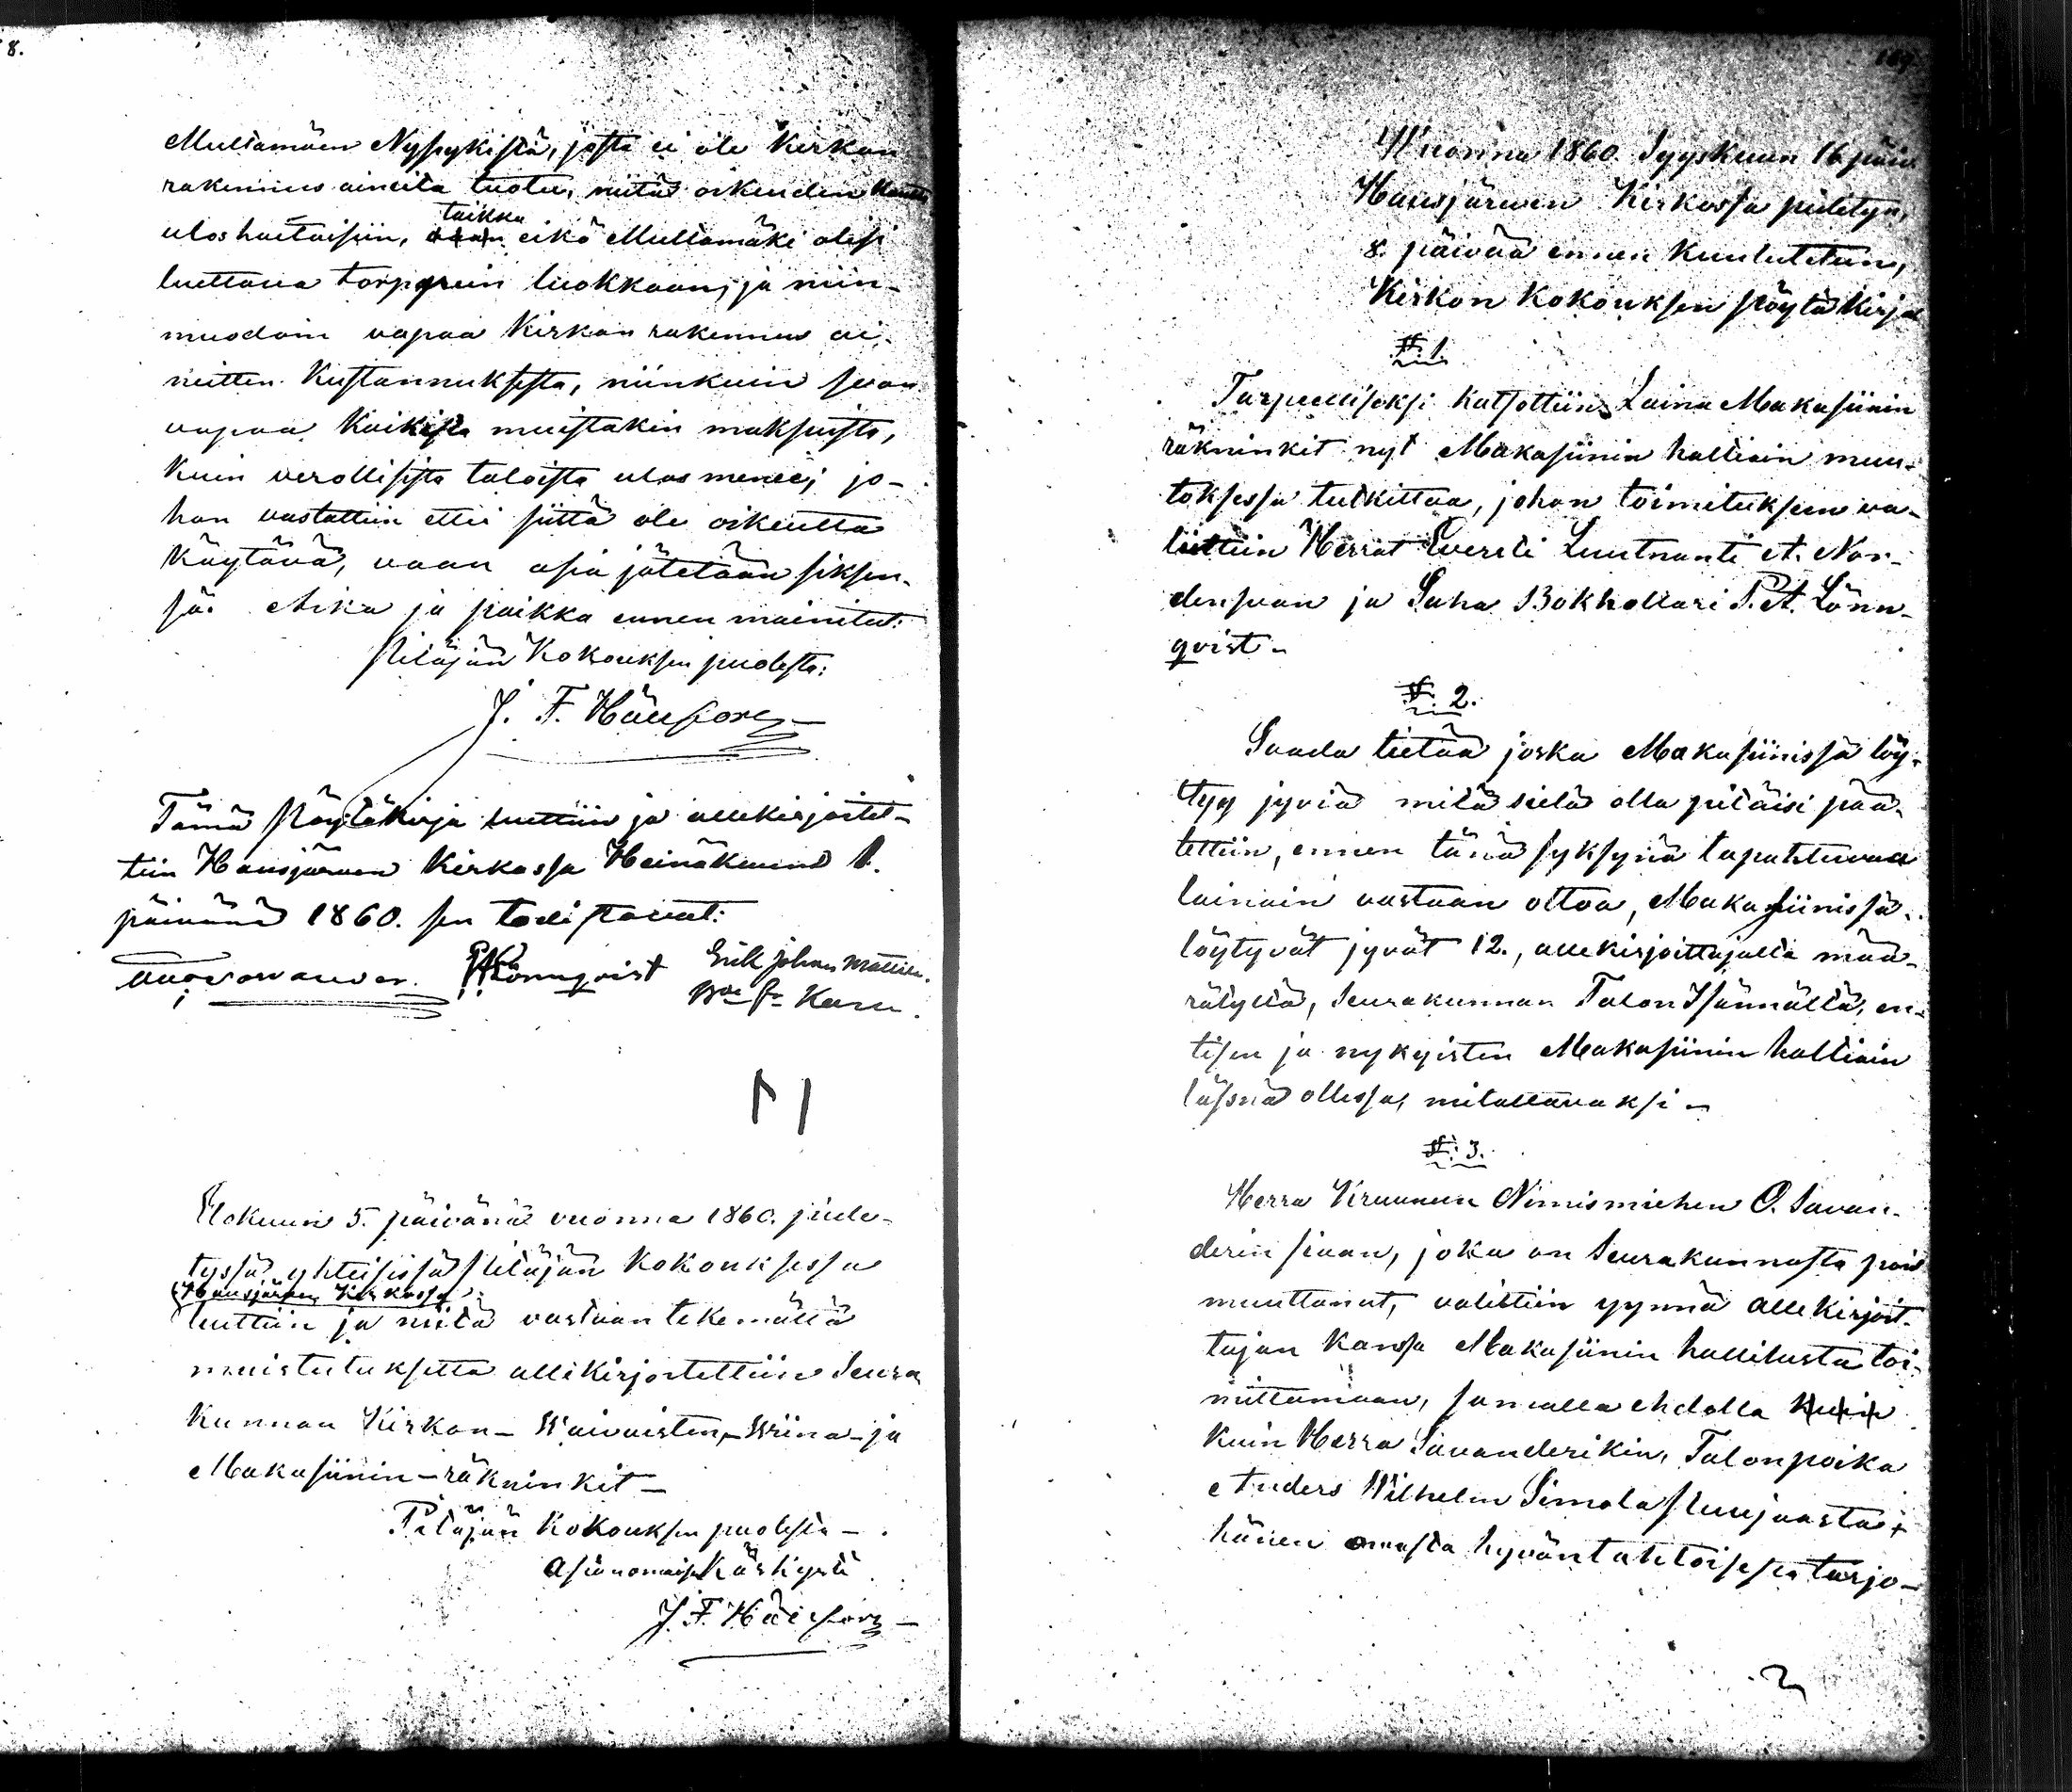 8.
Multamäen Nypykistä, josta ei ole Kirkon
rakennus aineita tuotu, niitä oikeuden kautta
taikka
uloshaetaisiin, eikö Multamäki olisi
luettava torpparein luokkaan, ja niin-
muodoin vapaa Kirkon rakennus ai-
neitten Kustannuksesta, niinkuin se on
vapaa Kaikista muistakin maksuista,
Kuin verollisista taloista ulos menee; jo-
hon vastattiin ettei siittä ole oikeutta
Käytävä, vaan asia jätetään siksen-
sä. Aika ja paikka ennen mainitut:
Pitäjän Kokouksen puolesta:
J. F.
Tämä Pöytäkirja luettiin ja allekirjoitet-
tiin Hausjärven Kirkossa Heinäkuun 1.
päivänä 1860. sen todistavat:
Lönnqvist Erik Johan Mattila.
Elokuun 5. päivänä vuonna 1860. pide-
tyssä yhteisissä Pitäjän Kokouksessa
Hausjärven Kirkossa
luettiin ja niitä vastaan tekemättä
muistutuksetta allekirjoitettiin Seura
Kunnan Kirkon- Waivaisten,- Wiina- ja
Makasiinin-räkninkit-
Pitäjän Kokouksen puolesta-
Asianomaisen Käskystä
J. F.
189.
Wuonna 1860. Syyskuun 16 päiv.
Hausjärwen Kirkossa pidetyn,
8. päivää ennen Kuulutetun,
Kirkon Kokouksen Pöytä Kirja
§. 1.
Tarpeelliseksi katsottiin Laina Makasiinin
räkninkit nyt Makasiinin haltiain muu-
toksessa tutkittaa, johon toimituksen va-
littiin Herrat Eversti Luutnanti A. Nor-
denswan ja Saha Bokhollari P. A. Lönn-
qvist-
§. 2.
Saada tietää joska Makasiinissä löy-
tyy jyviä mitä sielä olla pitäisi pää-
tettiin, ennen tänä syksynä tapahtuvaa
lainain vastaan ottoa, Makasiinissä
löytyvät jyvät 12., allekirjoittajalta mää-
rätyllä, Seurakunnan Talon Isännällä, en-
tisen ja nykyisten Makasiinin haltiain
läsnä ollessa, mitattavaksi-
§. 3.
Herra Kruunun Nimismiehen O. Savan-
derin siaan, joka on Seurakunnasta pois
muuttanut, valittiin ynnä allekirjoit-
tajan kanssa Makasiinin hallitusta toi-
mittamaan, samalla ehdolla
kuin Herra Savanderikin, Talonpoika
Anders Wilhelm Simola Puujaasta
hänen omasta hyväntahtoisesta tarjo-